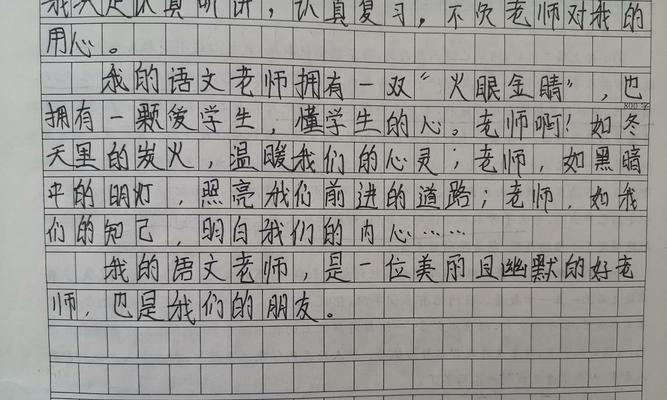 认真听讲，认真复习，不负老师对我的
用心。
我的语文老师拥有一双“火眼金睛”，也
800字
拥有一颗爱学生，懂学生的心。老师啊！如冬
天里的炭火，温暖我们的心灵；老师，如黑暗
中的明灯，照亮我们前进的道路；老师，如我
们的知己，明白我们的内心……
我的语文老师，是一位美丽且幽默的好老
师，也是我们的朋友。